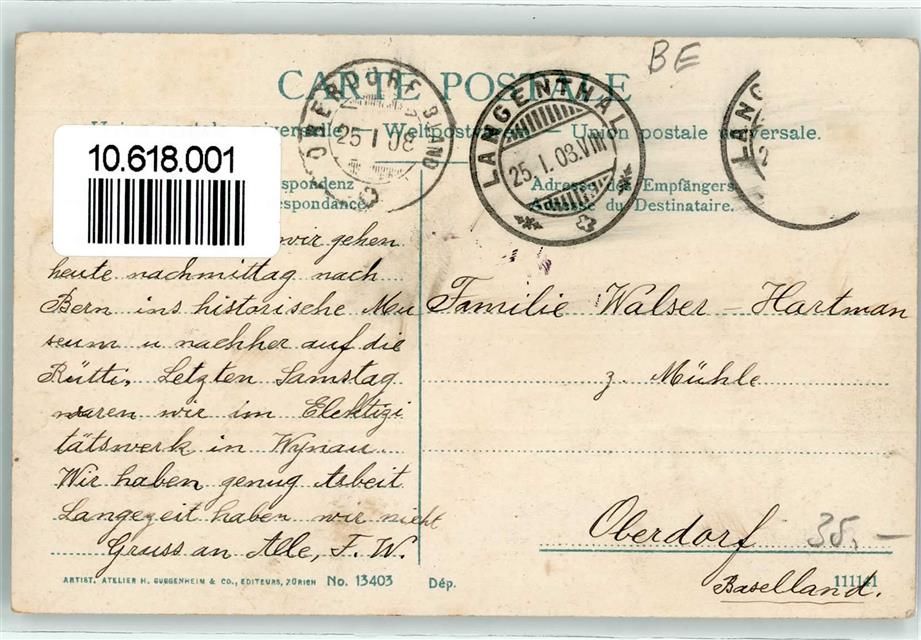 BE
CARTE POSTALE
Weltpostverein — Union postale universelle.
10.618.001
OBERDORF B'LAND
25 I 08
LANGENTHAL
25. I. 08. VIII
LANG
Adresse des Empfängers
Adresse du Destinataire.
wir gehen
heute nachmittag nach
Bern ins historische Mu
seum u nachher auf die
Rütti. Letzten Samstag
waren wir im Elektizi
tätswerk in Wynau.
Wir haben genug Arbeit
Langezeit haben wir nicht
Gruss an Alle, F. W.
Familie Walser - Hartman
z. Mühle
Oberdorf
35.-
Baselland.
ARTIST. ATELIER H. GUGGENHEIM & CO., EDITEURS, ZÜRICH No. 13403 Dép. 111141